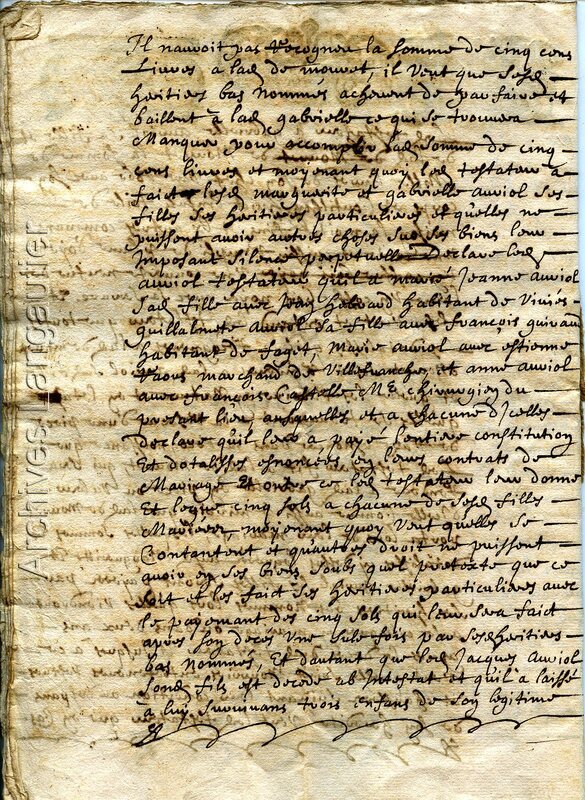 Il navoit pas recogneu la somme de cinq cens
Livres a lad de mouret, il veut que sesd
heritiers bas nommés achevent de parfaire et
baillent à lad gabrielle ce qui se trouvera
Manquer pour accomplir lad somme de cinq
cens livres et moyenant quoy led testateur a
faict lesd marguerite et gabrielle auriol ses
filles ses heritieres particulieres et quelles ne
puissent avoir autres choses sur ses biens leur
Imposant silence perpetuelle Declare led
auriol testateur quil a marié Jeanne auriol
sad fille avec habitant de Viviés
guillalmete auriol sa fille avec françois guiraud
habitant de faget, Marie auriol avec estienne
Raous marchand de Villefranche, et anne auriol
avec françois Castelle Me chirurgien du
presant lieu, ausquelles et a chacune dicelles
declare quil leur a payé lentiere constitution
Et dotalisses esnoncées en leurs contrats de
Mariage Et outre ce led testateur leur donne
Et legue cinq sols a chacune de sesd filles
Mariees, moyenant quoy veut quelles se
Contantent et quautres droit ne puissent
avoir en ses biens soubs quel pretexte que ce
soit et les faict ses heritieres particulieres avec
le payemant des cinq sols qui leur sera faict
apres son deces Une sule fois par sesd heritiers
bas nommés, Et dautant que led Jacques auriol
sond fils est decede ab Intestat et quil a laissé
à luy survivans trois enfans de son legitime
Archives Langautier